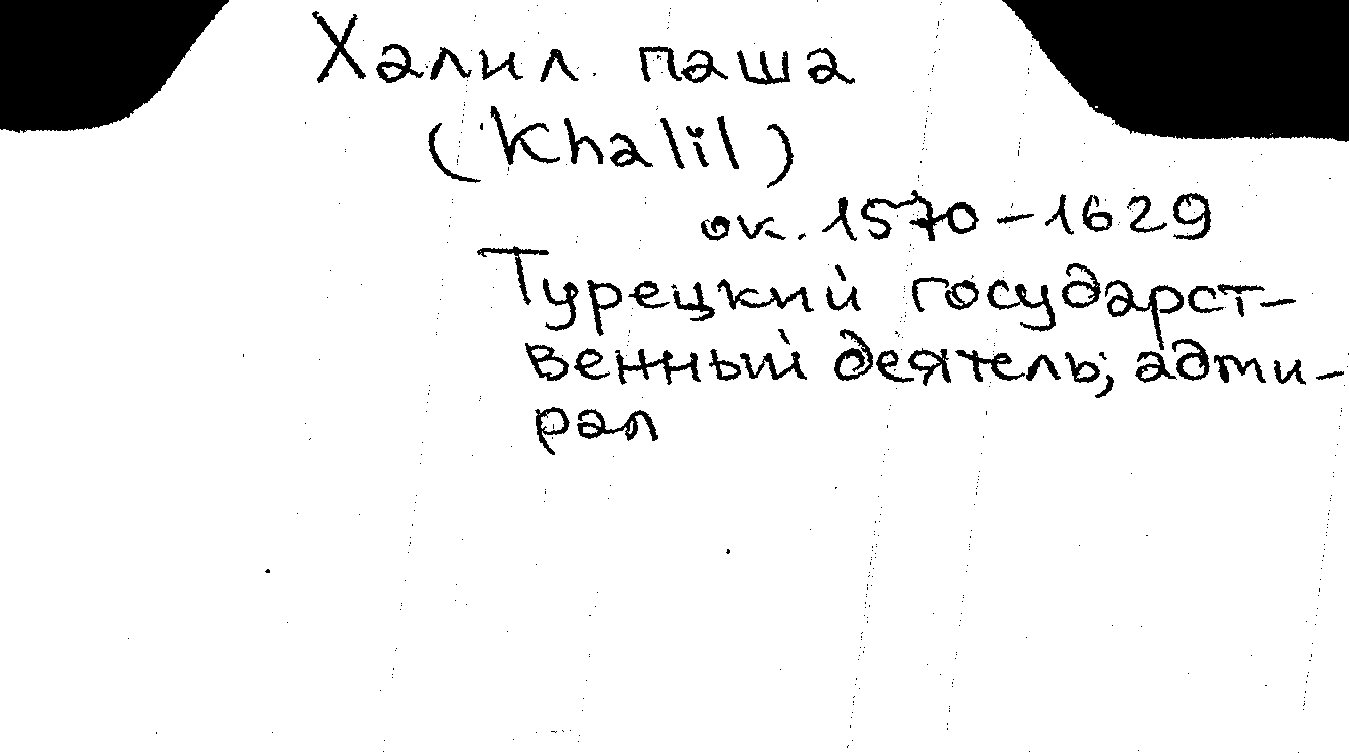 Халил паша
(Khalil)
ок. 1570-1629
Турецкий государст-
венный деятель, адми-
рал